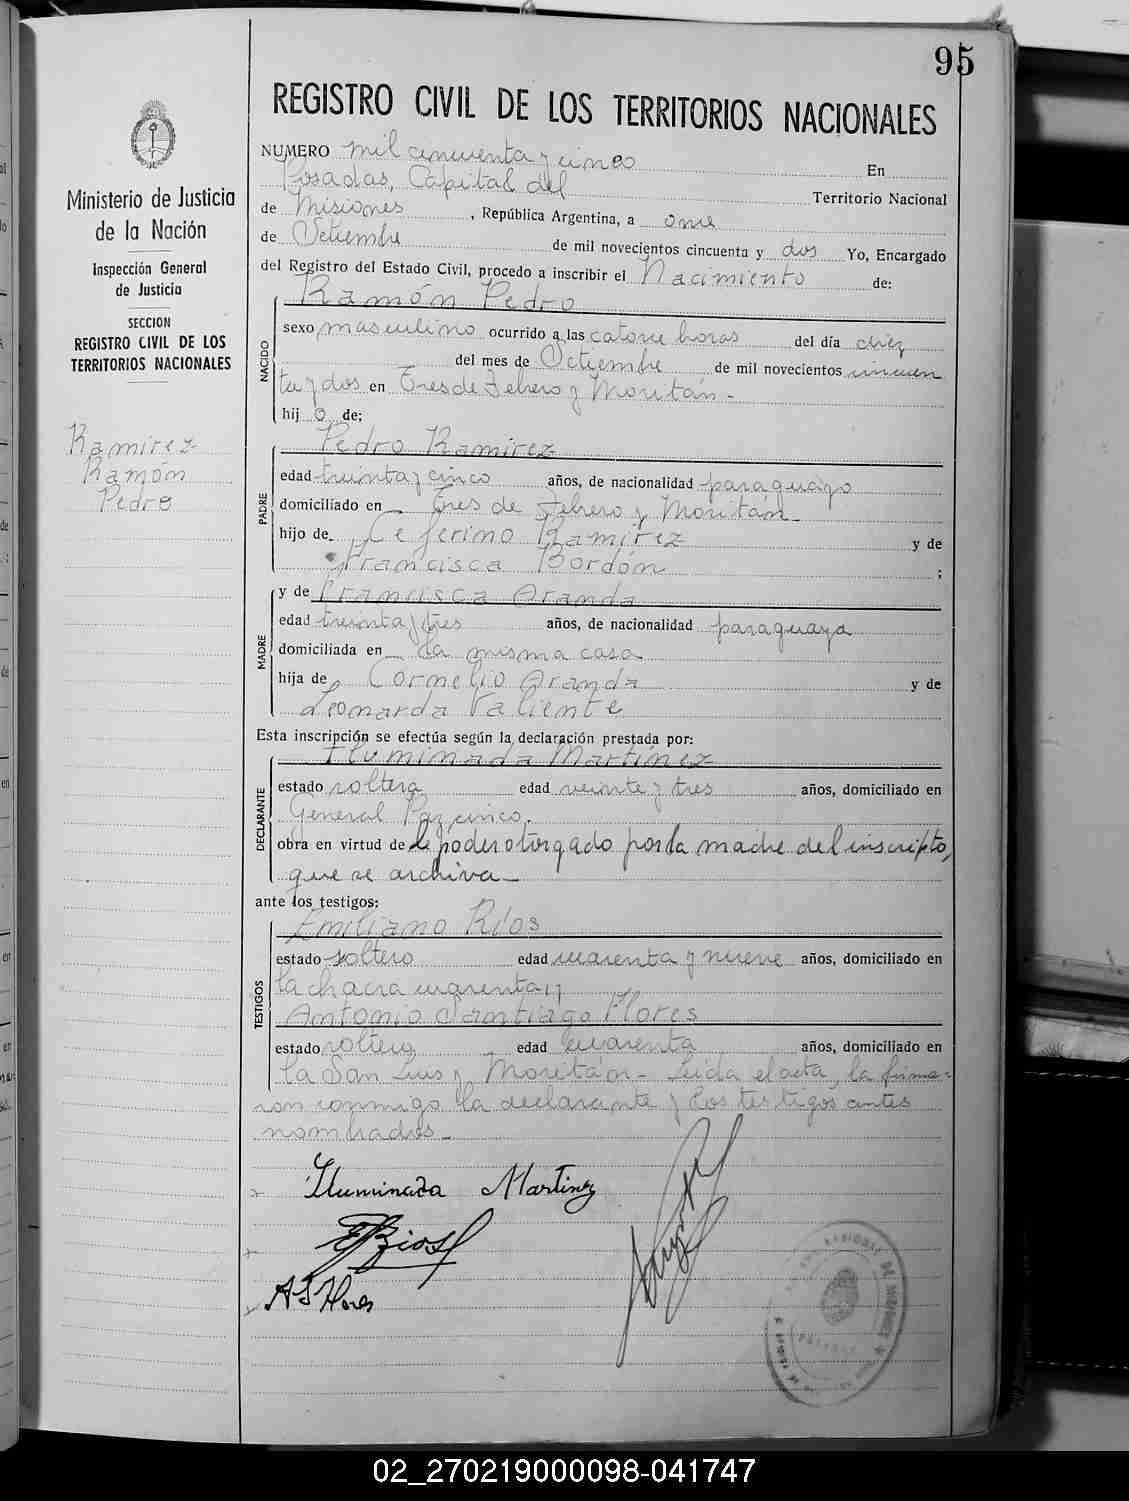 95
REGISTRO CIVIL DE LOS TERRITORIOS NACIONALES
Ministerio de Justicia
de la Nación
Inspección General
de Justicia
SECCION
REGISTRO CIVIL DE LOS
TERRITORIOS NACIONALES
Ramirez
Ramón
Pedro
NUMERO mil cincuenta y cinco En
Posadas, Capital del Territorio Nacional
de Misiones, República Argentina, a once
de Setiembre de mil novecientos cincuenta y dos Yo, Encargado
del Registro del Estado Civil, procedo a inscribir el Nacimiento de:
NACIDO
Ramón Pedro
sexo masculino ocurrido a las catorce horas del día diez
del mes de Setiembre de mil novecientos cincuen
ta y dos en Tres de Febrero y Moritán -
hij o de:
PADRE
Pedro Ramirez
edad treinta y cinco años, de nacionalidad paraguayo
domiciliado en Tres de Febrero y Moritán -
hijo de Ceferino Ramirez y de
Francisca Bordón ;
MADRE
y de Francisca Aranda
edad treinta y tres años, de nacionalidad paraguaya
domiciliada en la misma casa
hija de Cornelio Aranda y de
Leonarda Valiente
Esta inscripción se efectúa según la declaración prestada por:
DECLARANTE
Iluminada Martinez
estado soltera edad veinte y tres años, domiciliado en
General Paz cinco.
obra en virtud de poder otorgado por la madre del inscripto,
que se archiva -
ante los testigos:
TESTIGOS
Emiliano Ríos
estado soltero edad cuarenta y nueve años, domiciliado en
la chacra cuarenta y
Antonio Santiago Flores
estado soltero edad cuarenta años, domiciliado en
la San Luis y Moritán - Leída el acta, la firma-
ron conmigo la declarante y los testigos antes
nombrados -
Iluminada Martinez
E Rios
A S Flores
POSADAS
02_270219000098-041747